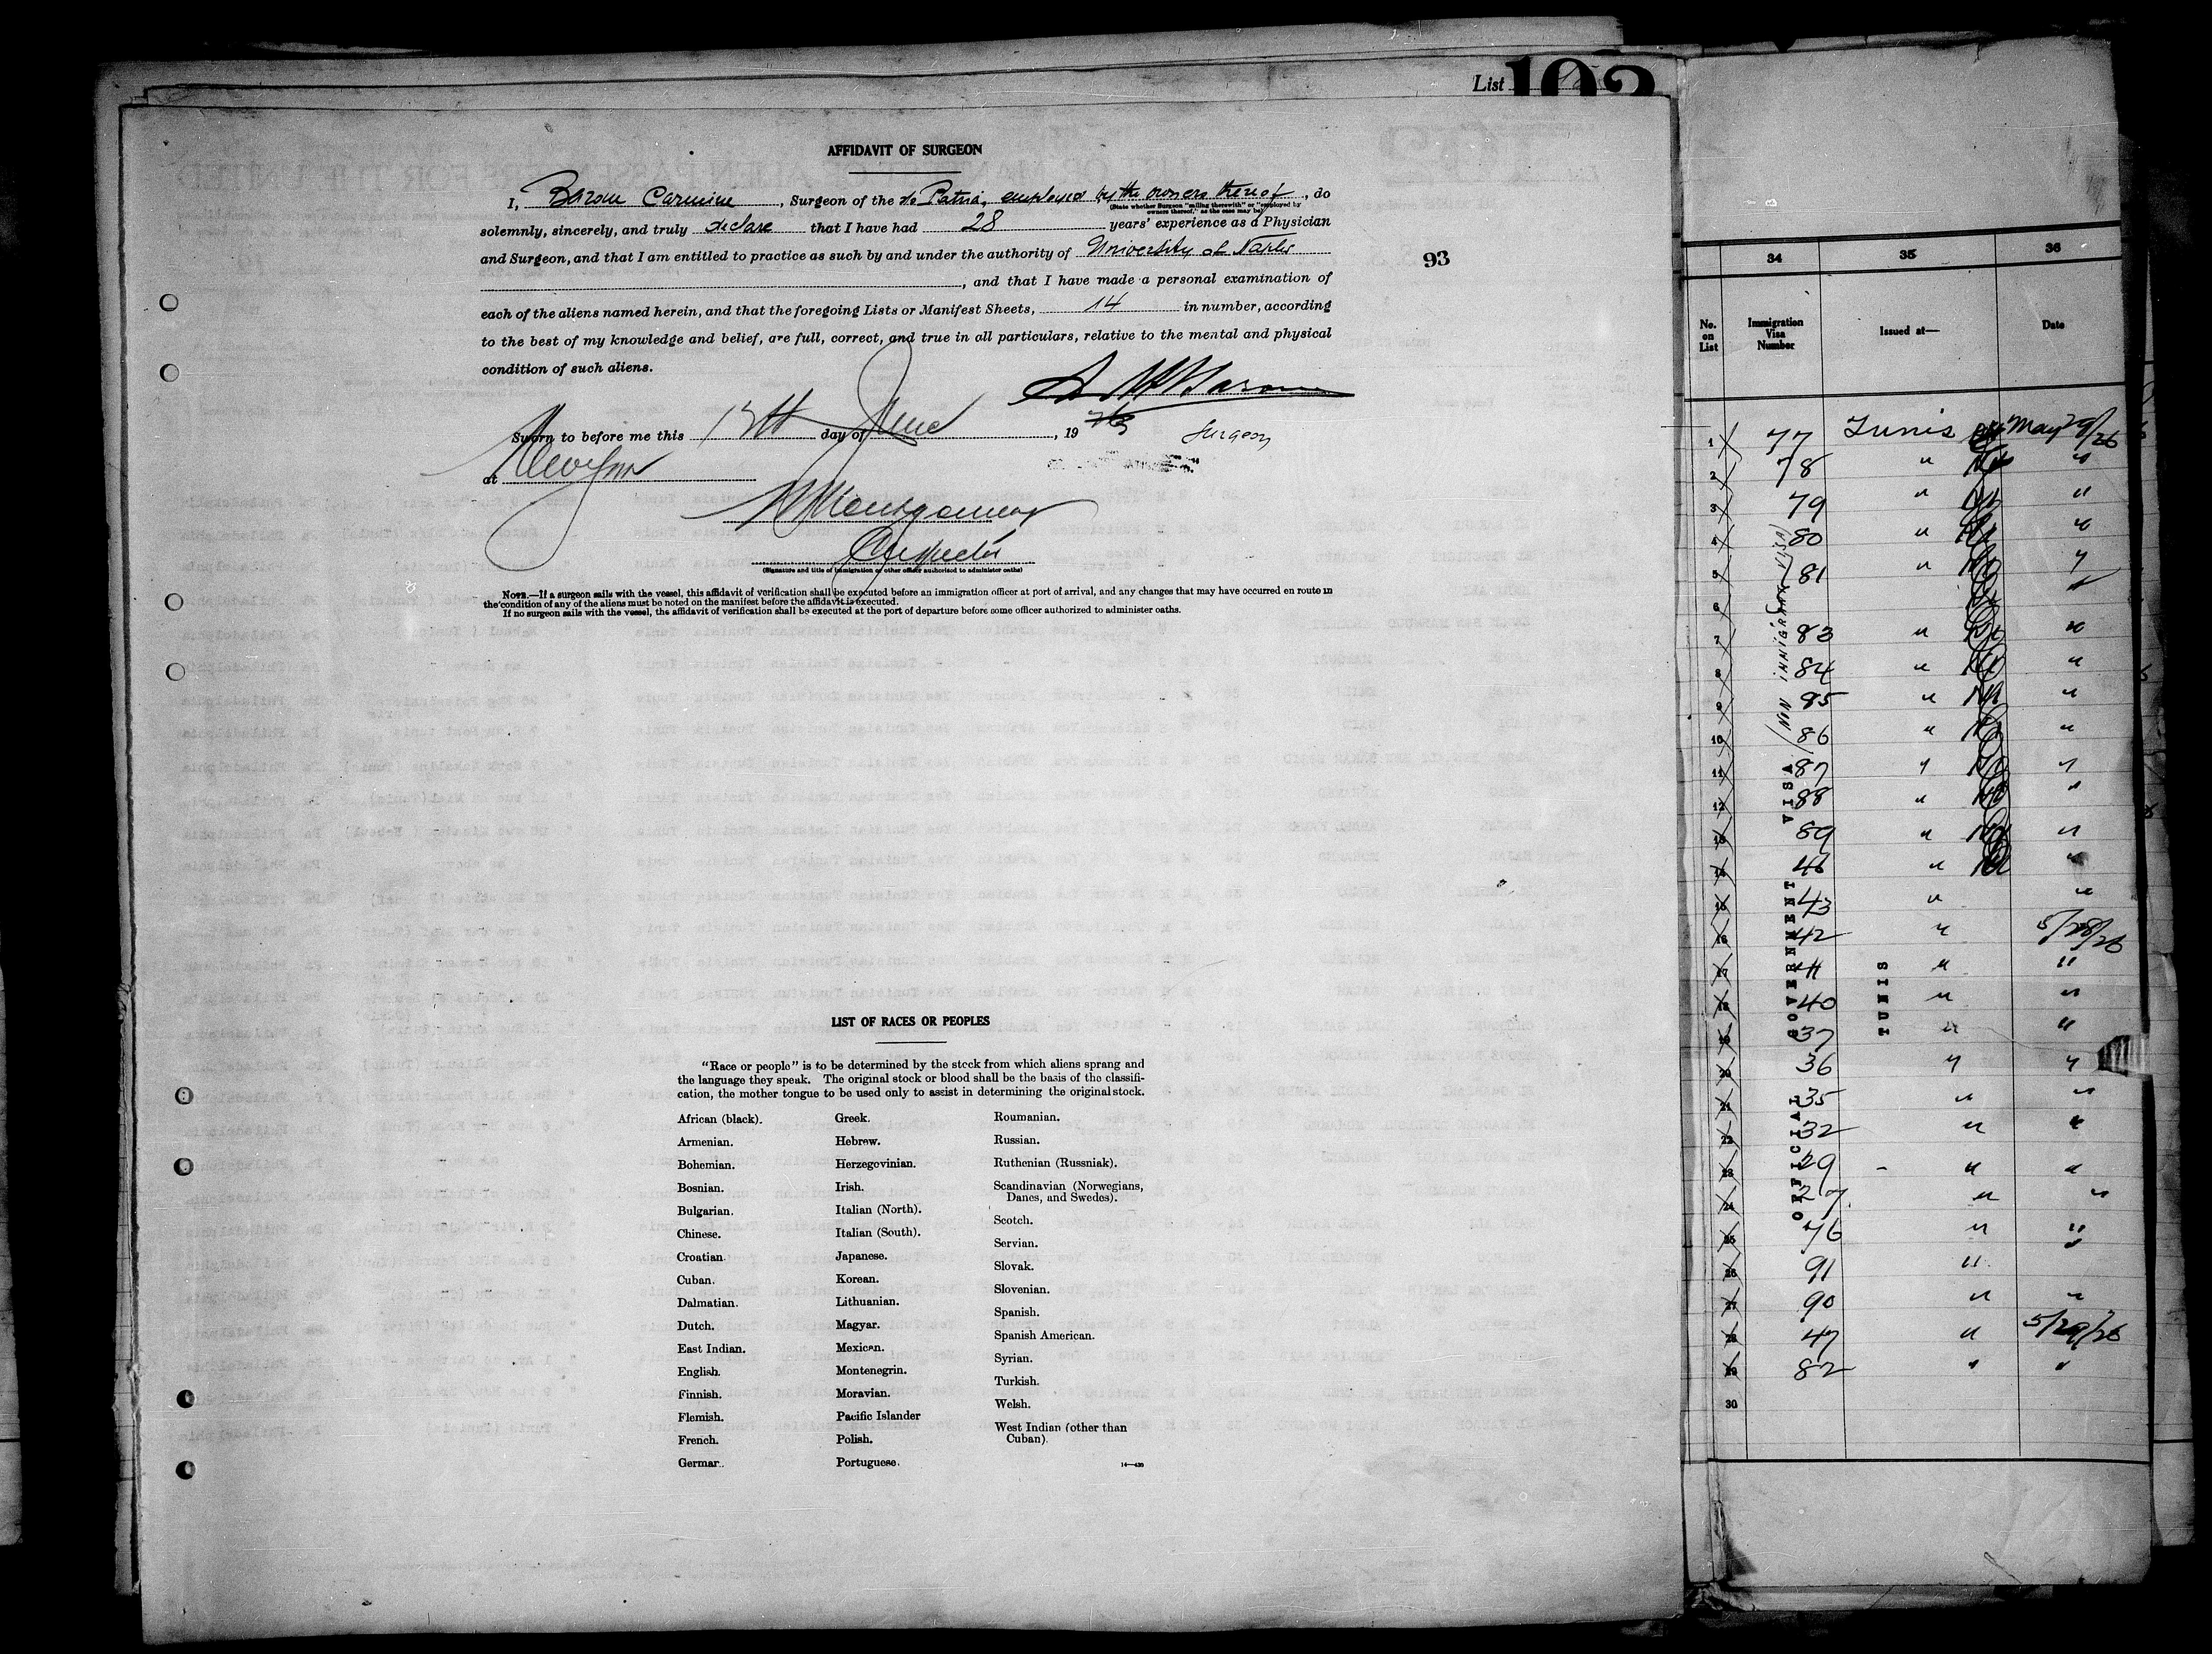 List 102
AFFIDAVIT OF SURGEON
I, Barone Carmine, Surgeon of the ss Patria, employed by the owners thereof, do
(State whether Surgeon "sailing therewith" or "employed by
owners thereof," as the case may be)
solemnly, sincerely, and truly declare that I have had 28 years' experience as a Physician
and Surgeon, and that I am entitled to practice as such by and under the authority of University of Naples
, and that I have made a personal examination of
each of the aliens named herein, and that the foregoing Lists or Manifest Sheets, 14 in number, according
to the best of my knowledge and belief, are full, correct, and true in all particulars, relative to the mental and physical
condition of such aliens.
Sworn to before me this 13th day of June, 19
Surgeon
at New York
Montgomery
Inspector
(Signature and title of immigration or other officer authorized to administer oaths)
NOTE.—If a surgeon sails with the vessel, this affidavit of verification shall be executed before an immigration officer at port of arrival, and any changes that may have occurred en route in
the condition of any of the aliens must be noted on the manifest before the affidavit is executed.
If no surgeon sails with the vessel, the affidavit of verification shall be executed at the port of departure before some officer authorized to administer oaths.
93
LIST OF RACES OR PEOPLES
"Race or people" is to be determined by the stock from which aliens sprang and
the language they speak. The original stock or blood shall be the basis of the classifi-
cation, the mother tongue to be used only to assist in determining the original stock.
African (black).
Armenian.
Bohemian.
Bosnian.
Bulgarian.
Chinese.
Croatian.
Cuban.
Dalmatian.
Dutch.
East Indian.
English.
Finnish.
Flemish.
French.
German.
Greek.
Hebrew.
Herzegovinian.
Irish.
Italian (North).
Italian (South).
Japanese.
Korean.
Lithuanian.
Magyar.
Mexican.
Montenegrin.
Moravian.
Pacific Islander
Polish.
Portuguese.
Roumanian.
Russian.
Ruthenian (Russniak).
Scandinavian (Norwegians,
Danes, and Swedes).
Scotch.
Servian.
Slovak.
Slovenian.
Spanish.
Spanish American.
Syrian.
Turkish.
Welsh.
West Indian (other than
Cuban).
14—430
34 35 36
No. on List
Immigration Visa Number
Issued at—
Date
1 77 Tunis May 29/26
2 78 " "
3 79 " "
4 80 " "
5 81 " "
6
7 83 " "
8 84 " "
9 85 " "
10 86 " "
11 87 " "
12 88 " "
13 89 " "
14 46 " "
15 43 " "
16 42 " 5/28/26
17 41 " "
18 40 " "
19 37 " "
20 36 " "
21 35 " "
22 32 " "
23 29 " "
24 27 " "
25 76 " "
26 91 " "
27 90 " "
28 47 " 5/29/26
29 82 " "
30
(NON IMMIGRANT VISA)
OFFICIAL GOVERNMENT VISA
TUNIS